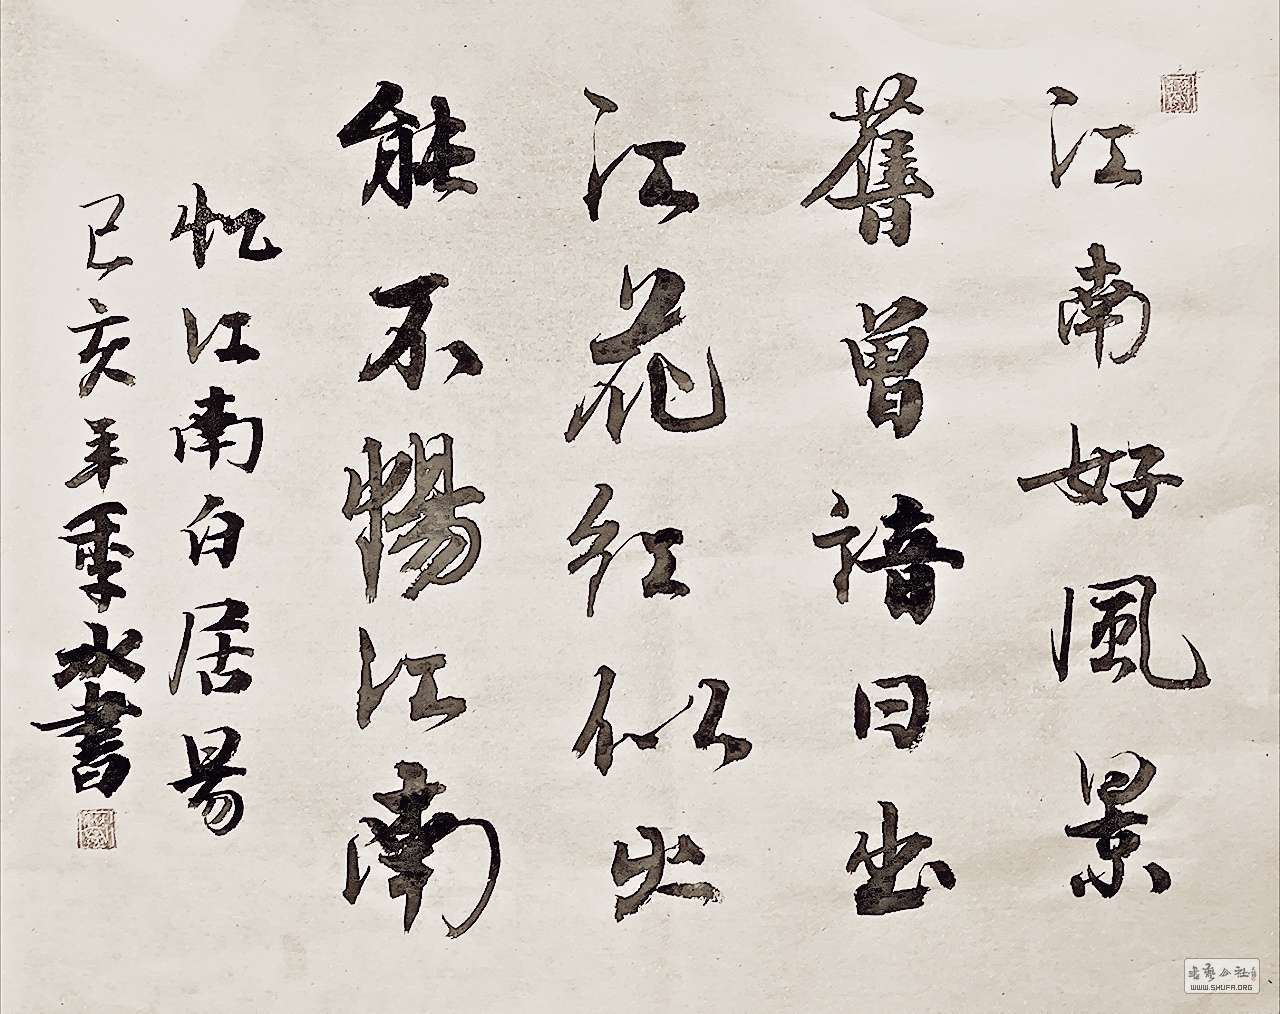 江南好風景
舊曾諳日出
江花红似火
能不愓江南
忆江南白居易
己亥年季水書
書藝公社
WWW.SHUFA.ORG